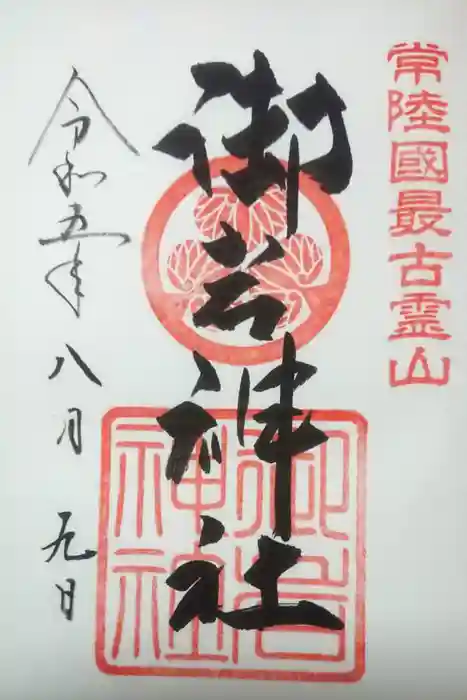 常陸國最古霊山
御岩神社
御岩神社
令和五年八月九日